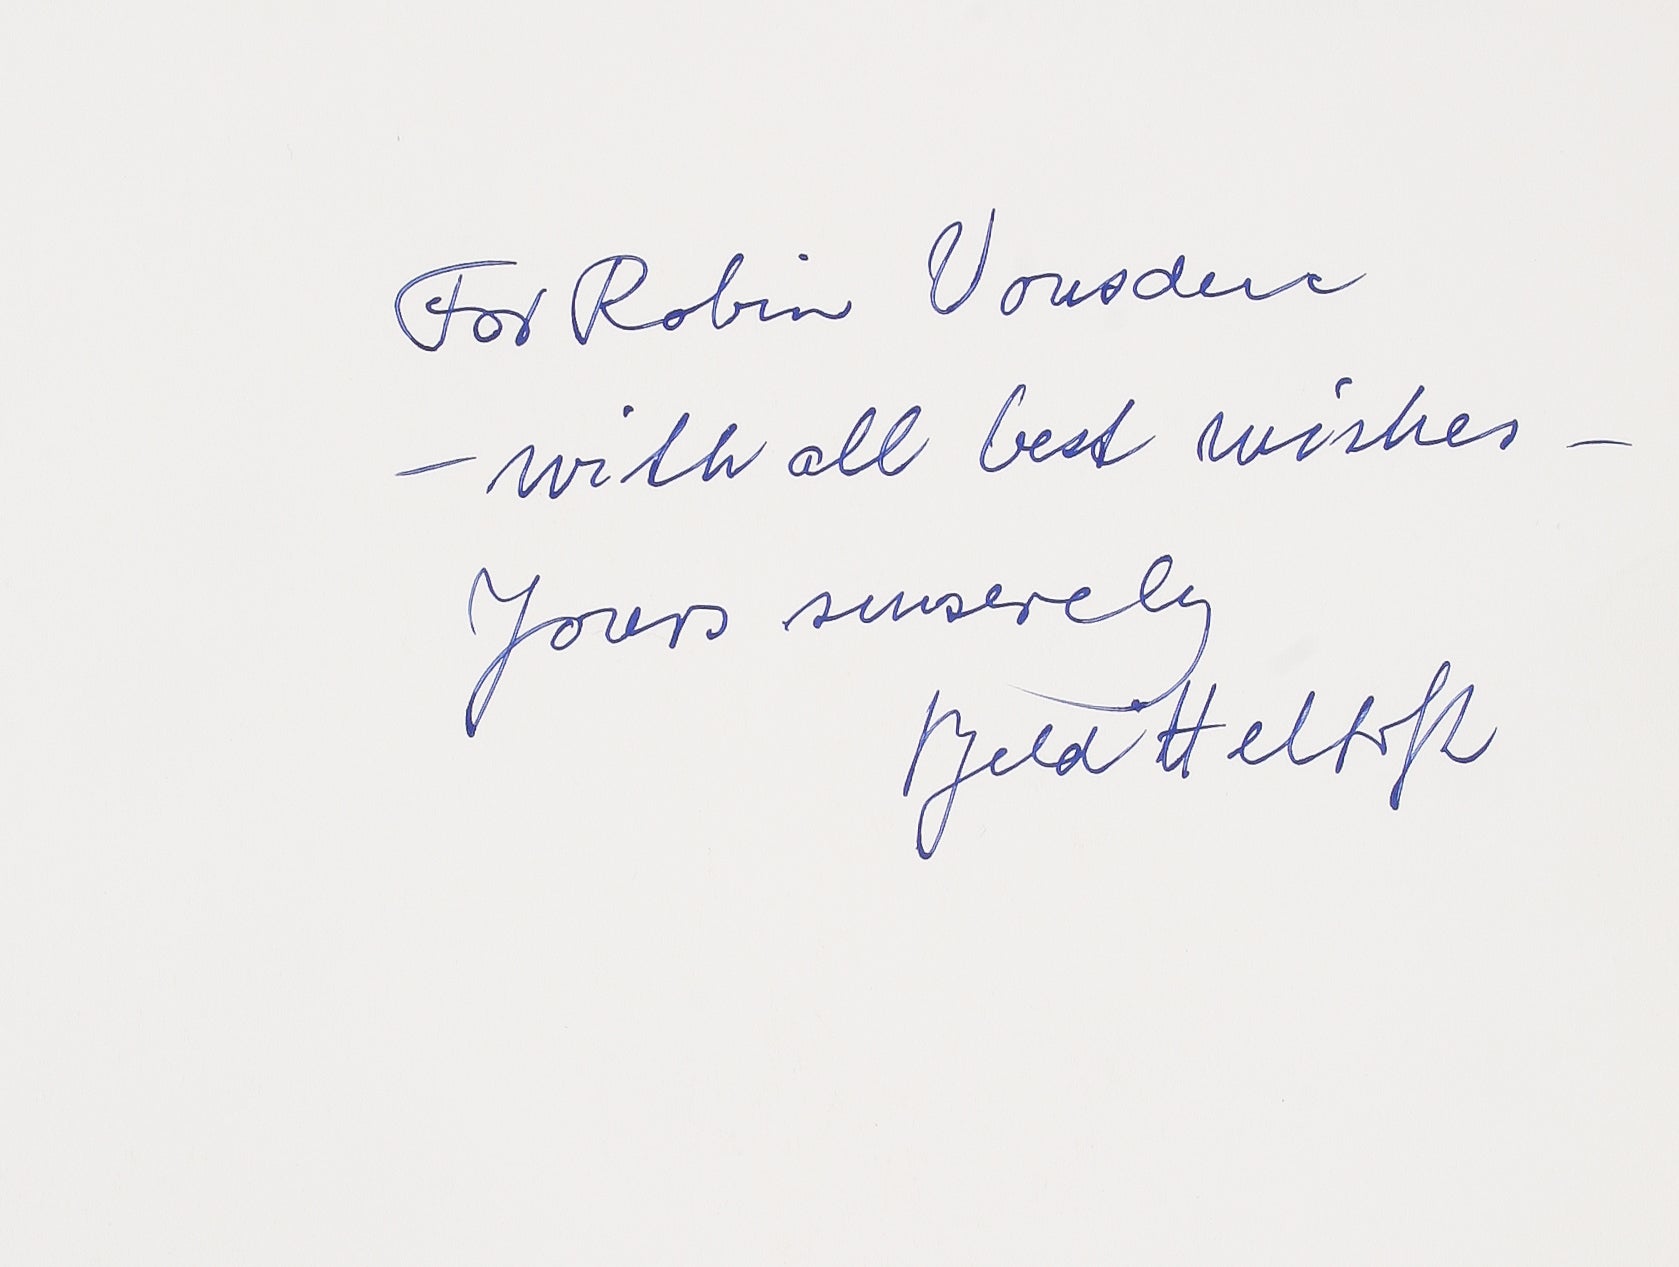 For Robin Vousden
– with all best wishes –
Yours sinserely
Kjeld Heltoft